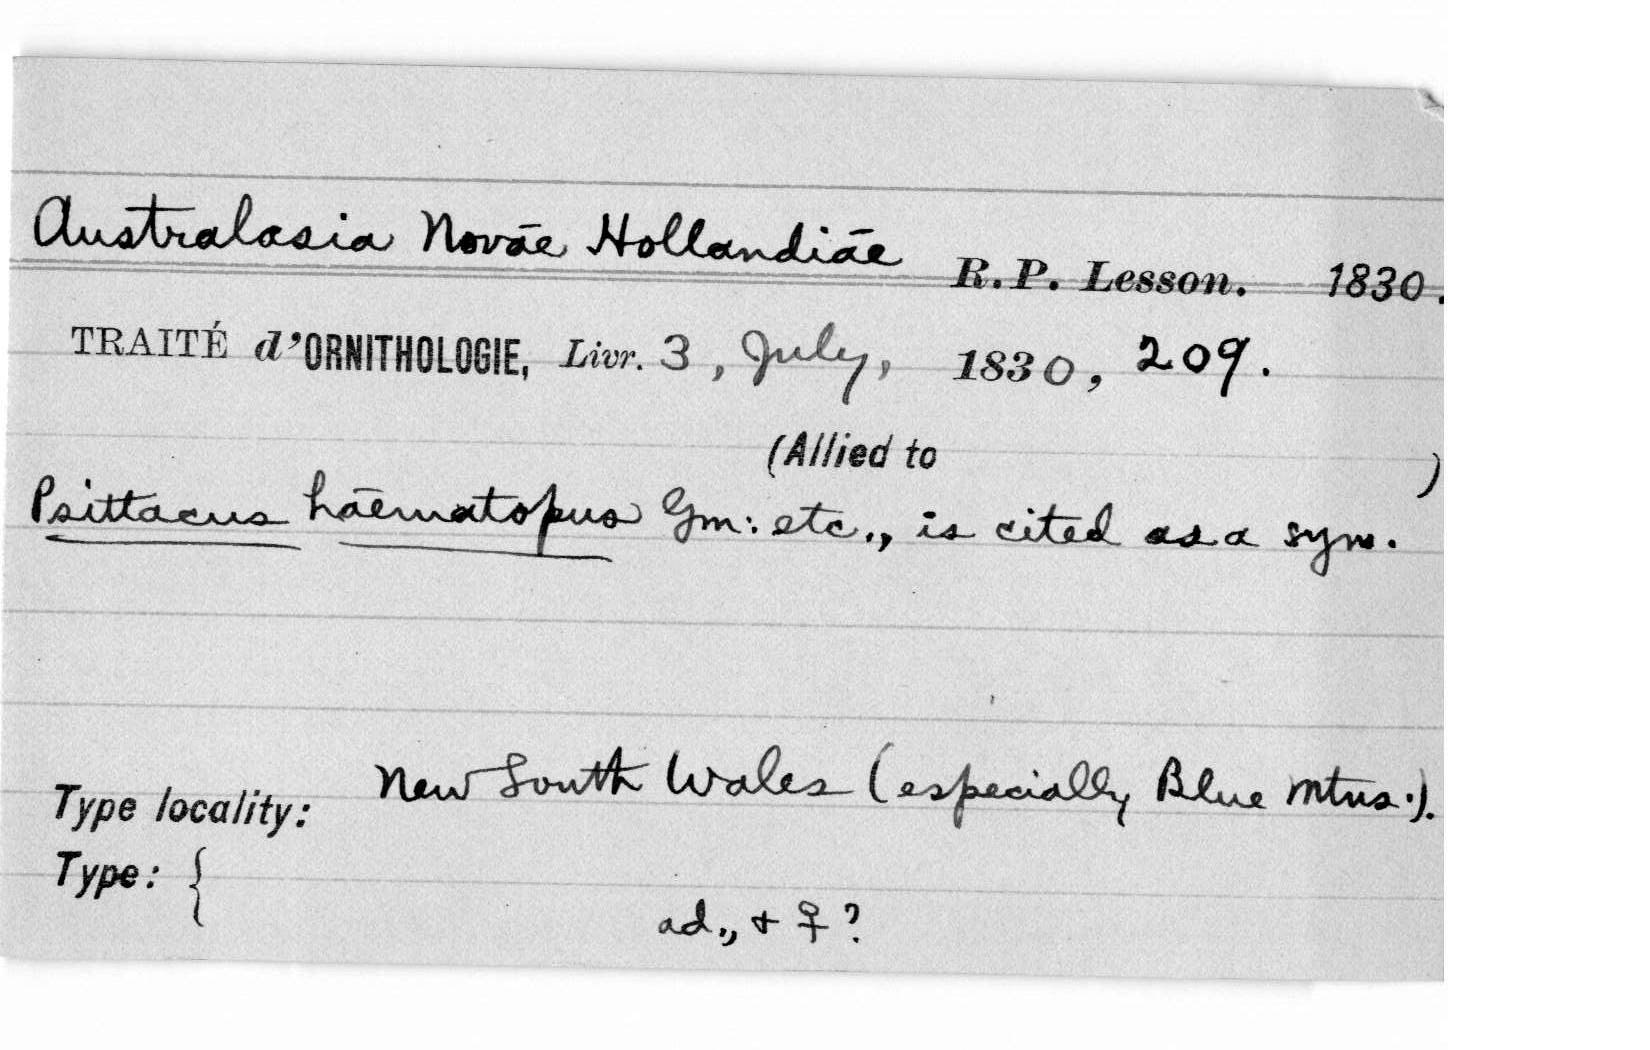 Australasia Novāe Hollandiāe R.P. Lesson. 1830.
TRAITÉ d'ORNITHOLOGIE, Livr. 3, July, 1830, 209.
(Allied to )
Psittacus hāematopus Gm: etc., is cited as a syn.
Type locality: New South Wales (especially Blue Mtns.).
Type: {
ad., + ♀?